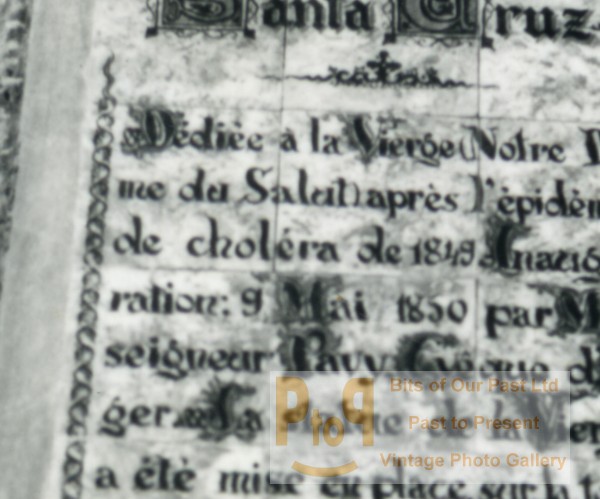 Santa Cruz
Dédiée à la Vierge (Notre D
me du Salut) après l'épidém
de choléra de 1849 Inaug
ration: 9 Mai 1850 par M
seigneur Pavy Évêque d'
ger La
a été mise en place sur
PtoP
Bits of Our Past Ltd
Past to Present
Vintage Photo Gallery